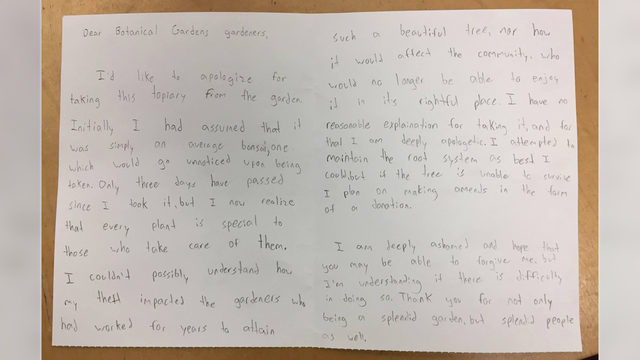 Dear Botanical Gardens gardeners,
I'd like to apologize for
taking this topiary from the garden
Initially I had assumed that it
was simply an average bonsai, one
which would go unnoticed upon being
taken. Only three days have passed
since I took it, but I now realize
that every plant is special to
those who take care of them.
I couldn't possibly understand how
my theft impacted the gardeners who
had worked for years to attain
such a beautiful tree, nor how
it would affect the community, who
would no longer be able to enjoy
it in its rightful place. I have no
reasonable explaination for taking it, and for
that I am deeply apologetic. I attempted to
maintain the root system as best I
could, but if the tree is unable to survive
I plan on making amends in the form
of a donation.
I am deeply ashamed and hope that
you may be able to forgive me, but
I'm understanding if there is difficulty
in doing so. Thank you for not only
being a splendid garden, but splendid people
as well.